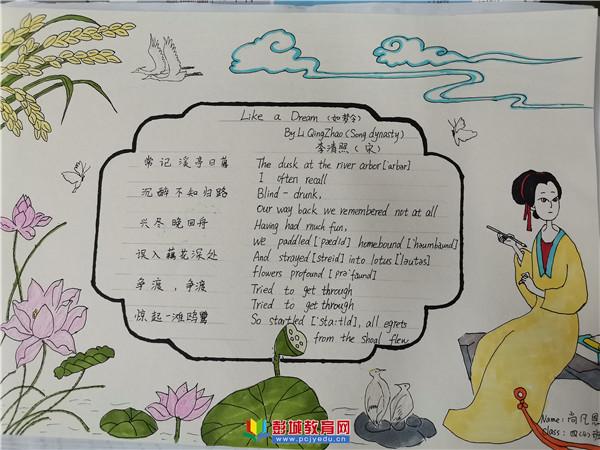 Like a Dream (如梦令)
By Li QingZhao (Song dynasty)
李清照 (宋)
常记溪亭日暮 The dusk at the river arbor['arbər]
I often recall
沉醉不知归路 Blind-drunk,
Our way back we remembered not at all
兴尽晚回舟 Having had much fun,
We paddled['pædld] homebound['həumbaund]
误入藕花深处 And strayed[streid] into lotus['ləutəs]
flowers profound[prə'faund]
争渡，争渡 Tried to get through
Tried to get through
惊起一滩鸥鹭 So startled['sta:tld], all egrets
from the shoal flew
Name: 尚
Class: 四(4)班
彭城教育网
www.pcjyedu.cn